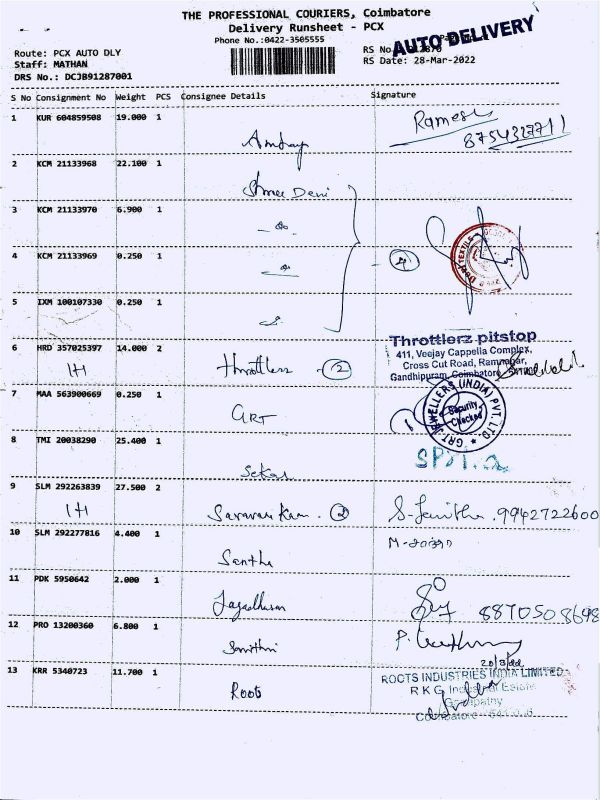 THE PROFESSIONAL COURIERS, Coimbatore
Delivery Runsheet - PCX
Phone No.:0422-3505555
AUTO DELIVERY
Route: PCX AUTO DLY
Staff: MATHAN
DRS No.: DCJB91287001
RS No
RS Date: 28-Mar-2022
S No Consignment No Weight PCS Consignee Details Signature
1 KUR 604859508 19.000 1
Ramesh
8754327711
2 KCM 21133968 22.100 1
Shree Devi
3 KCM 21133970 6.900 1
4 KCM 21133969 0.250 1
4
5 IXM 100107330 0.250 1
6 HRD 357025397 14.000 2
Throttlerz 2
Throttlerz pitstop
411, Veejay Cappella Complex,
Cross Cut Road, Ramnagar,
Gandhipuram, Coimbatore
7 MAA 563900669 0.250 1
GRT
1
GRT JEWELLERS (INDIA) PVT. LTD.
Security
Checked
8 TMI 20038290 25.400 1
Sekar
9 SLM 292263839 27.500 2
Saravana Kum. 2
9942722600
10 SLM 292277816 4.400 1
Santha
11 PDK 5950642 2.000 1
8870508698
12 PRO 13200360 6.800 1
Savithri
13 KRR 5340723 11.700 1
Roots
ROOTS INDUSTRIES INDIA LIMITED
R K G Industrial Estate
Ganapathy
Coimbatore